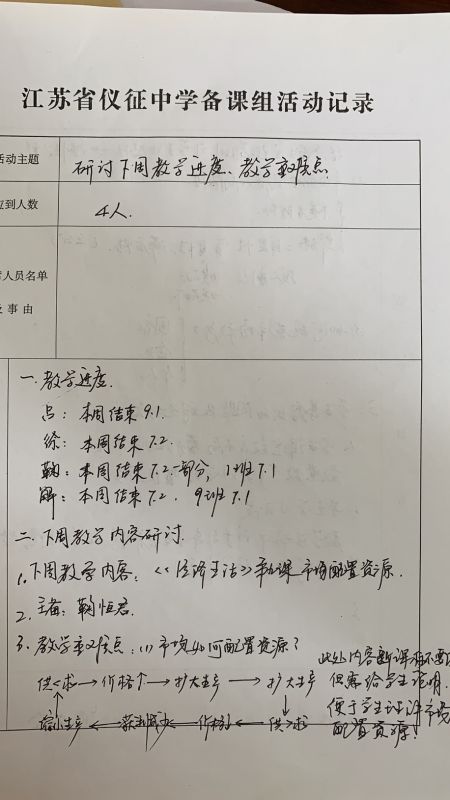 江苏省仪征中学备课组活动记录
活动主题 研讨下周教学进度、教学重难点.
应到人数 4人.
人员名单
事由
一.教学进度.
吕: 本周结束9.1.
徐: 本周结束7.2.
鞠: 本周结束7.2.一部分, 1班7.1
解: 本周结束7.2. 9班7.1
二.下周教学内容研讨.
1.下周教学内容: 《经济生活》第九课 市场配置资源.
2.主备: 鞠恒君.
3.教学重难点: (1)市场如何配置资源?
供<求→价格个→扩大生产→扩大生产
↑ ↓
缩小生产←获利减少←价格←供>求
此处内容新课标不要求
但需给学生说明
便于学生理解市场
配置资源!